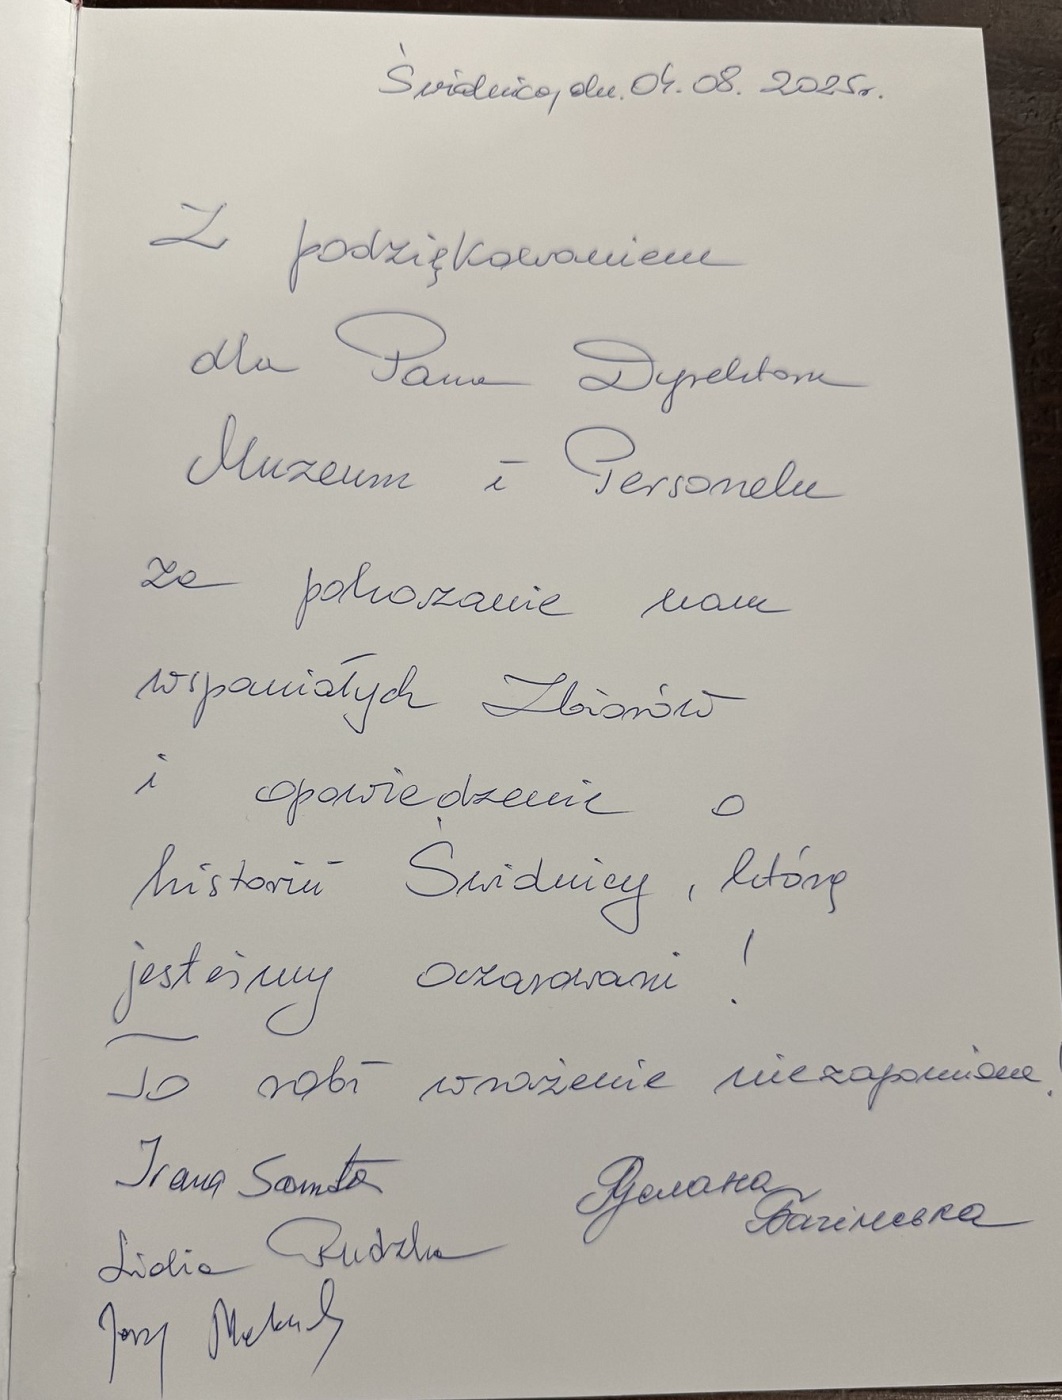 Świdnica, dn. 04.08.2025r.
Z podziękowaniem
dla Pana Dyrektora
Muzeum i Personelu
za pokazanie nam
wspaniałych Zbiorów
i opowiedzenie o
historii Świdnicy, którą
jesteśmy oczarowani!
To robi wrażenie niezapomniane!
Lidia Rudzka
Jerzy